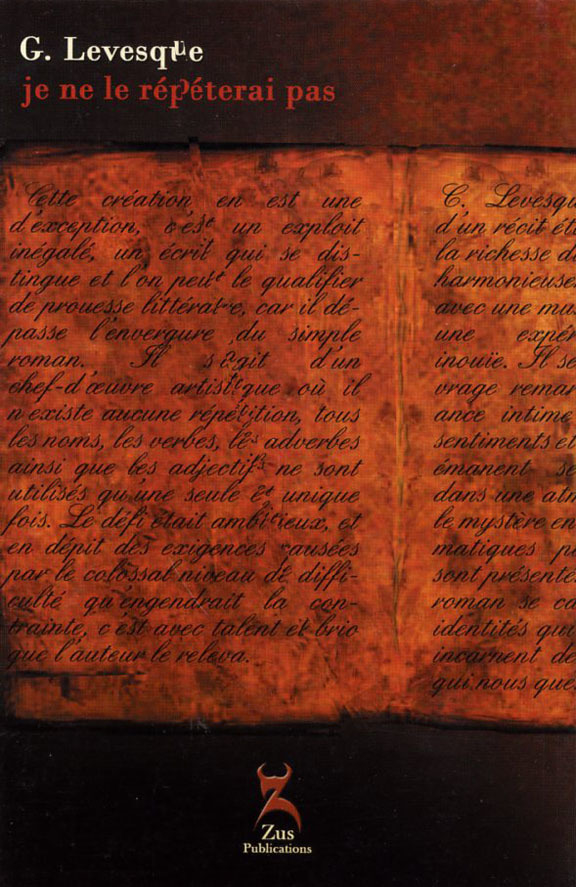 G. Levesque
je ne le répéterai pas
Cette création en est une
d'exception, c'est un exploit
inégalé, un écrit qui se dis-
tingue et l'on peut le qualifier
de prouesse littéraire, car il dé-
passe l'envergure du simple
roman. Il s'agit d'un
chef-d'œuvre artistique où il
n'existe aucune répétition, tous
les noms, les verbes, les adverbes
ainsi que les adjectifs ne sont
utilisés qu'une seule et unique
fois. Le défi était ambitieux, et
en dépit des exigences causées
par le colossal niveau de diffi-
culté qu'engendrait la con-
trainte, c'est avec talent et brio
que l'auteur le releva.
G. Levesqu
d'un récit ét
la richesse d
harmonieuse
avec une ma
une expér
inouïe. Il se
vrage remar
ance intime
sentiments et
émanent se
dans une atm
le mystère en
matiques p
sont présenté
roman se ca
identités qui
incarnent de
qui nous que
Zus
Publications